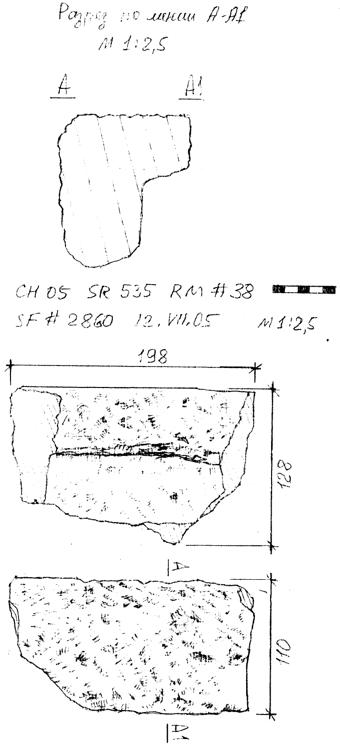 Разрез по линии А-А1
М 1:2,5
А
А1
CH 05 SR 535 RM # 38
SF # 2860 12.VII.05 М 1:2,5
198
128
А
110
А1